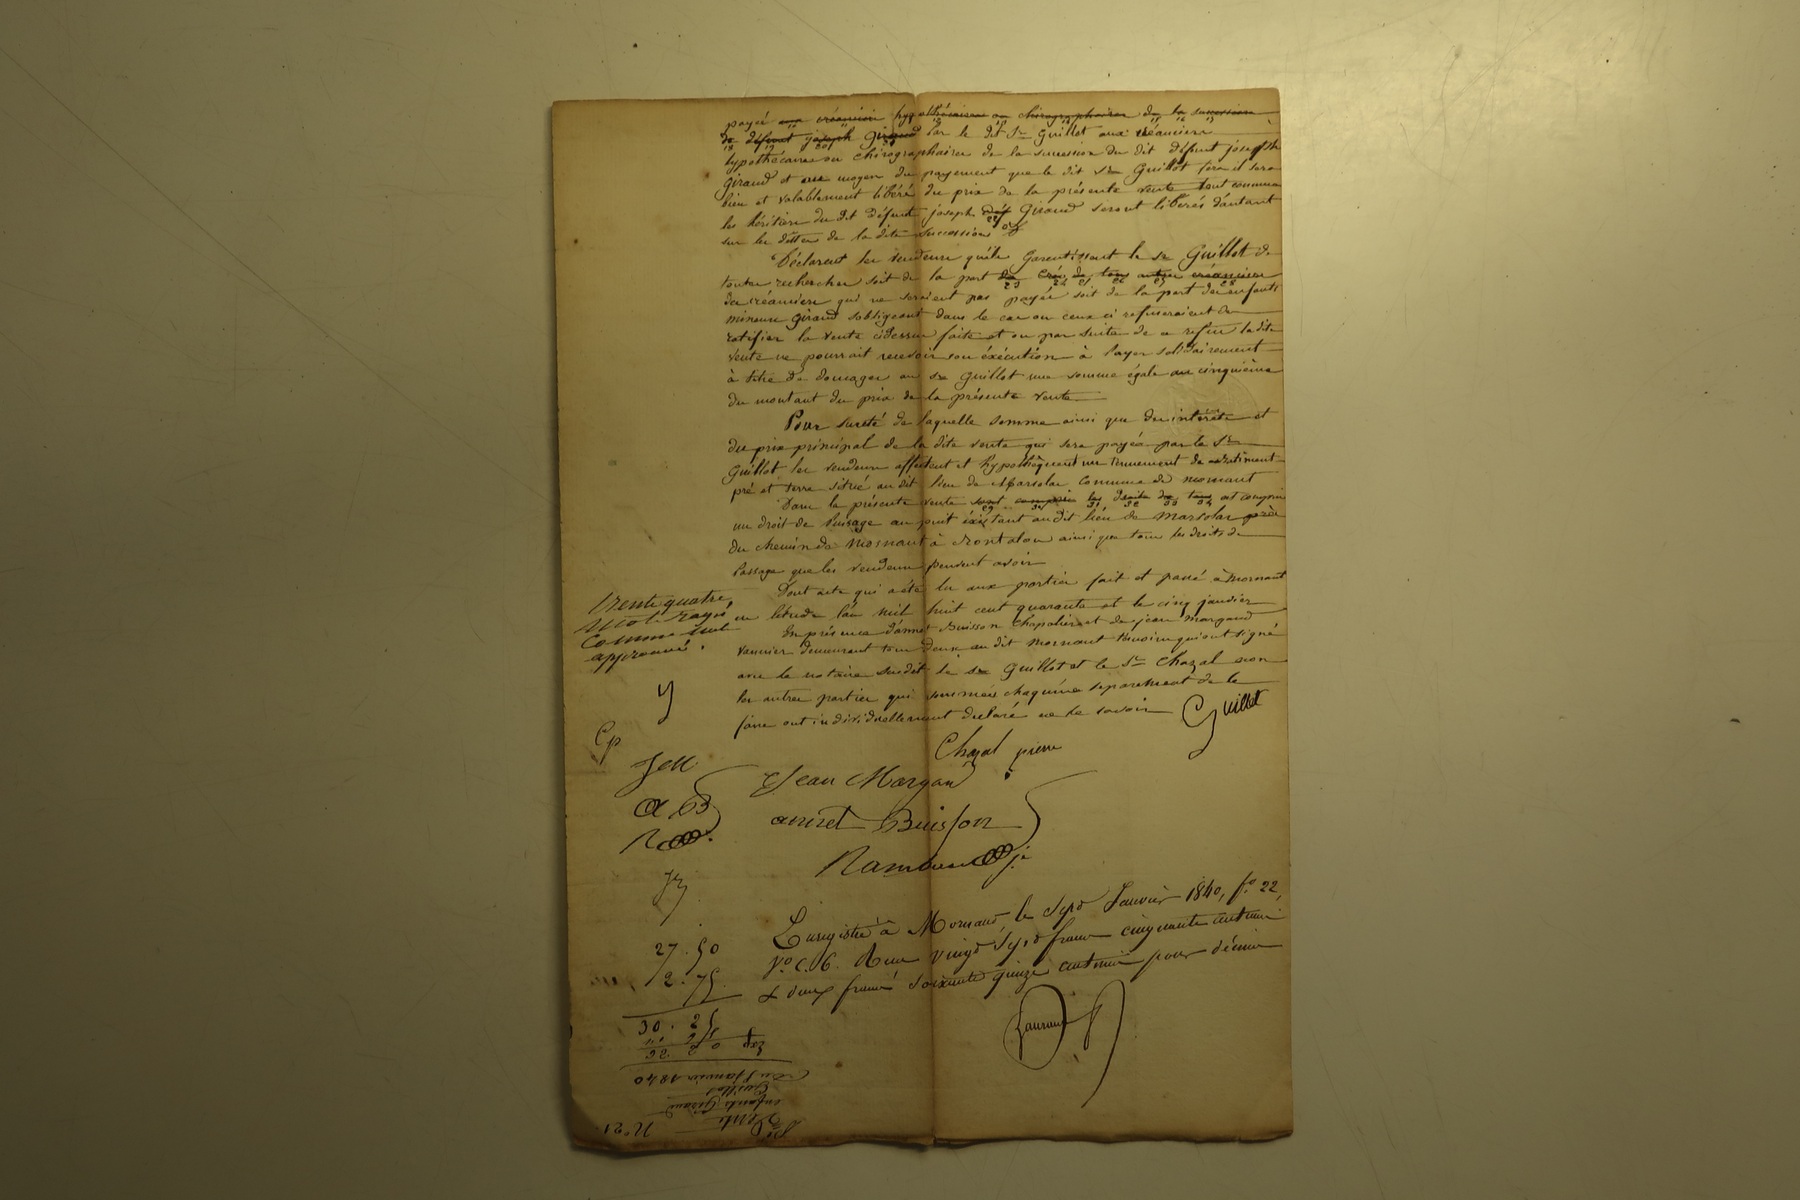 payé aux créanciers hypothécaires ou chirographaires de la succession
du défunt joseph Giraud par le dit Sr Guillot aux créanciers
hypothécaires ou chirographaires de la succession du dit défunt joseph
Giraud et au moyen du payement que le dit Sr Guillot fera il sera
bien et valablement libéré du prix de la présente vente tout comme
les héritiers du dit défunt joseph Giraud seront libérés d'autant
sur les dettes de la dite succession
Déclarent les vendeurs qu'ils garentissent le Sr Guillot de
toutes recherches soit de la part de tous autres créanciers
des créanciers qui ne seraient pas payés soit de la part des enfants
mineurs Giraud s'obligeant dans le cas ou ceux ci refuseraient de
ratifier la vente cidessus faite et ou par suite de ce refus la dite
vente ne pourrait recevoir son éxécution à payer solidairement
à titre de domages au Sr Guillot une somme égale au cinquième
du montant du prix de la présente vente
Pour sureté de laquelle somme ainsi que des interets et
du prix principal de la dite vente qui sera payée par le Sr
Guillot les vendeurs affectent et hypothèquent un tennement de
pré et terre situé au dit lieu de Marsolas commune de mornant
Dans la présente vente sont compris les droits de tous est compris
un droit de puisage au puit éxistant au dit lieu de Marsolas près
du chemin de Mornant à Rontalon ainsi que tous les droits de
passage que les vendeurs peuvent avoir
Dont acte qui a été lu aux parties fait et passé à Mornant
en l'étude l'an mil huit cent quarante et le cinq janvier
En présence d'annet Buisson Chapelier et de jean Margand
vannier demeurant tous deux au dit Mornant témoins qui ont signé
avec le notaire susdit le Sr Guillot et le Sr Chazal non
les autres parties qui sommées chaqu'une séparément de le
faire ont individuellement déclaré ne le savoir
Trente quatre
mots rayés
comme nuls
approuvés.
Guillot
Chazal pierre
Cp
JM
Jean Margan
a B
annet Buisson
Enregistré à Mornant, le sept Janvier 1840, fo 22,
Vo C. 6. Reçu vingt sept francs cinquante centimes
& deux francs soixante quinze centimes pour décime
27. 50
2. 75
30. 25
Du 5 Janvier 1840
Guillot
enfants Giraud
Vente
No 21